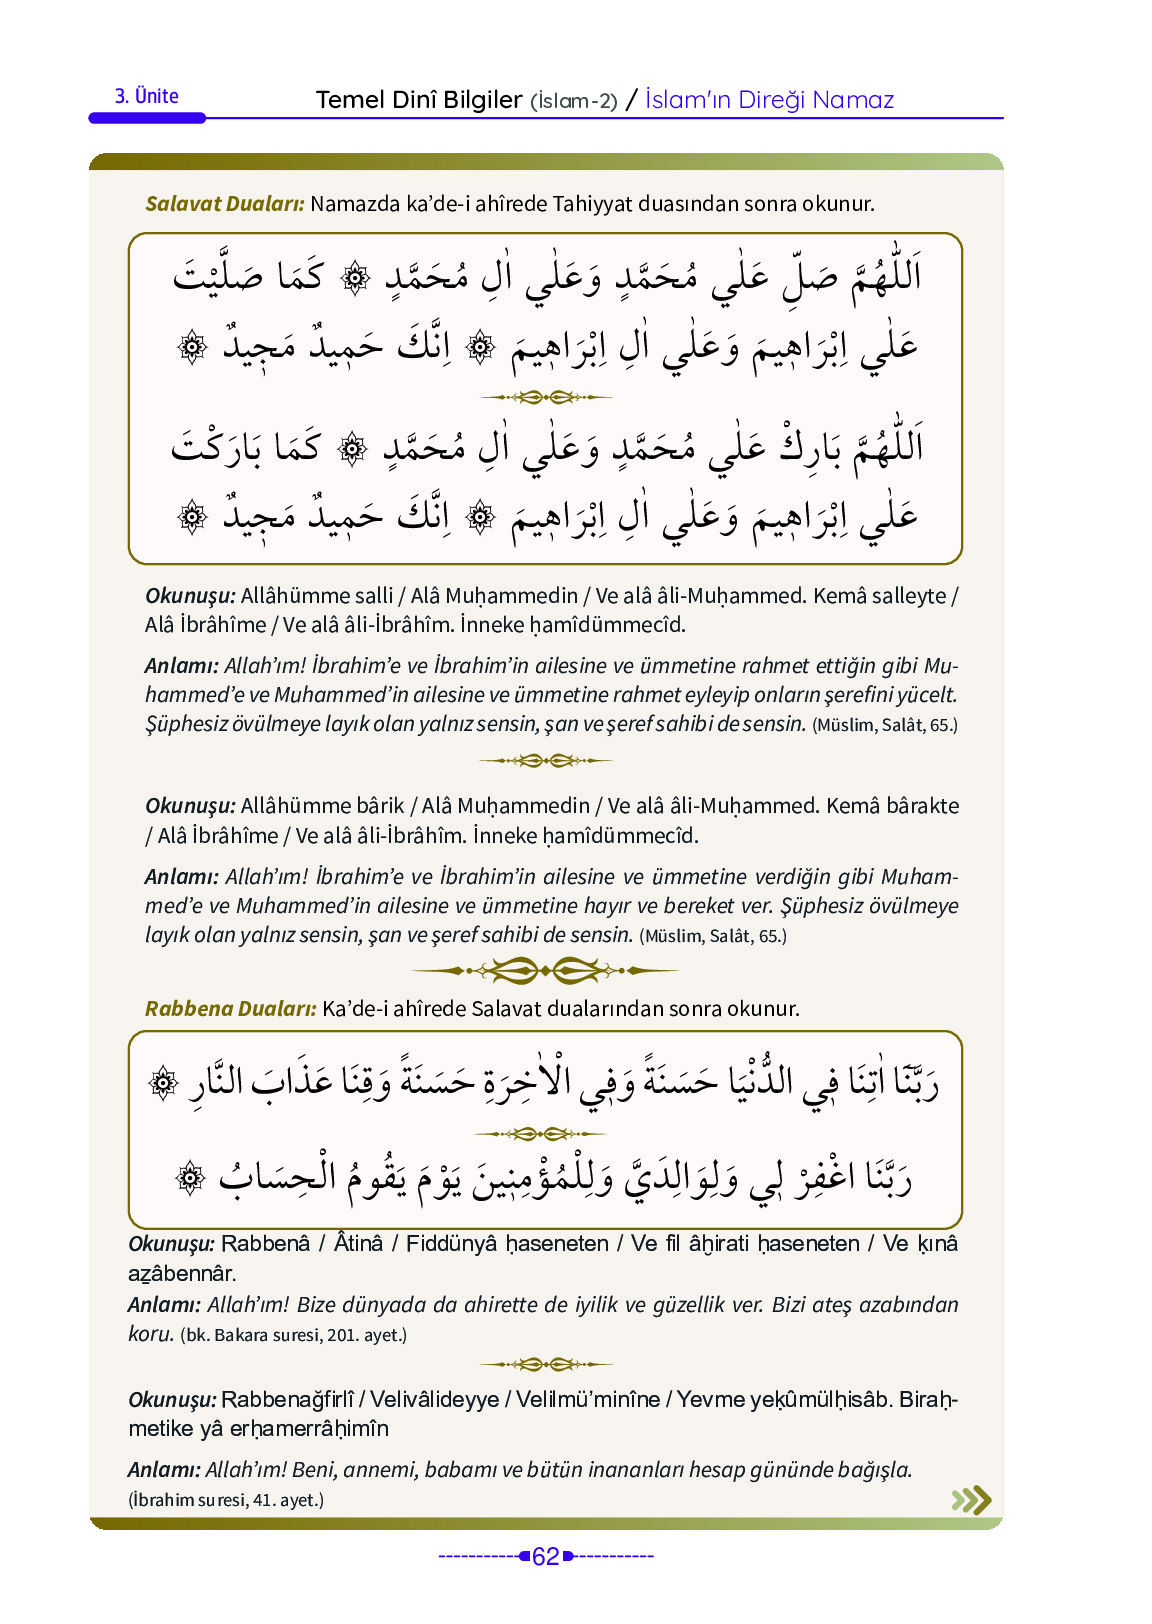 3. Ünite
Temel Dinî Bilgiler (İslam-2) / İslam'ın Direği Namaz
Salavat Duaları: Namazda ka’de-i ahîrede Tahiyyat duasından sonra okunur.
اَللّٰهُمَّ صَلِّ عَلٰي مُحَمَّدٍ وَعَلٰي اٰلِ مُحَمَّدٍ ۞ كَمَا صَلَّيْتَ
عَلٰي اِبْرَاهٖيمَ وَعَلٰي اٰلِ اِبْرَاهٖيمَ ۞ اِنَّكَ حَمٖيدٌ مَجٖيدٌ ۞
اَللّٰهُمَّ بَارِكْ عَلٰي مُحَمَّدٍ وَعَلٰي اٰلِ مُحَمَّدٍ ۞ كَمَا بَارَكْتَ
عَلٰي اِبْرَاهٖيمَ وَعَلٰي اٰلِ اِبْرَاهٖيمَ ۞ اِنَّكَ حَمٖيدٌ مَجٖيدٌ ۞
Okunuşu: Allâhümme salli / Alâ Muḥammedin / Ve alâ âli-Muḥammed. Kemâ salleyte /
Alâ İbrâhîme / Ve alâ âli-İbrâhîm. İnneke ḥamîdümmecîd.
Anlamı: Allah’ım! İbrahim’e ve İbrahim’in ailesine ve ümmetine rahmet ettiğin gibi Mu-
hammed’e ve Muhammed’in ailesine ve ümmetine rahmet eyleyip onların şerefini yücelt.
Şüphesiz övülmeye layık olan yalnız sensin, şan ve şeref sahibi de sensin. (Müslim, Salât, 65.)
Okunuşu: Allâhümme bârik / Alâ Muḥammedin / Ve alâ âli-Muḥammed. Kemâ bârakte
/ Alâ İbrâhîme / Ve alâ âli-İbrâhîm. İnneke ḥamîdümmecîd.
Anlamı: Allah’ım! İbrahim’e ve İbrahim’in ailesine ve ümmetine verdiğin gibi Muham-
med’e ve Muhammed’in ailesine ve ümmetine hayır ve bereket ver. Şüphesiz övülmeye
layık olan yalnız sensin, şan ve şeref sahibi de sensin. (Müslim, Salât, 65.)
Rabbena Duaları: Ka’de-i ahîrede Salavat dualarından sonra okunur.
رَبَّنَٓا اٰتِنَا فِي الدُّنْيَا حَسَنَةً وَفِي الْاٰخِرَةِ حَسَنَةً وَقِنَا عَذَابَ النَّارِ ۞
رَبَّنَا اغْفِرْ لٖي وَلِوَالِدَيَّ وَلِلْمُؤْمِنٖينَ يَوْمَ يَقُومُ الْحِسَابُ ۞
Okunuşu: Rabbenâ / Âtinâ / Fiddünyâ ḥaseneten / Ve fil âḫirati ḥaseneten / Ve ḳınâ
aẕâbennâr.
Anlamı: Allah’ım! Bize dünyada da ahirette de iyilik ve güzellik ver. Bizi ateş azabından
koru. (bk. Bakara suresi, 201. ayet.)
Okunuşu: Rabbenağfirlî / Velivâlideyye / Velilmü’minîne / Yevme yeḳûmülḥisâb. Biraḥ-
metike yâ erḥamerrâḥimîn
Anlamı: Allah’ım! Beni, annemi, babamı ve bütün inananları hesap gününde bağışla.
(İbrahim suresi, 41. ayet.)
62